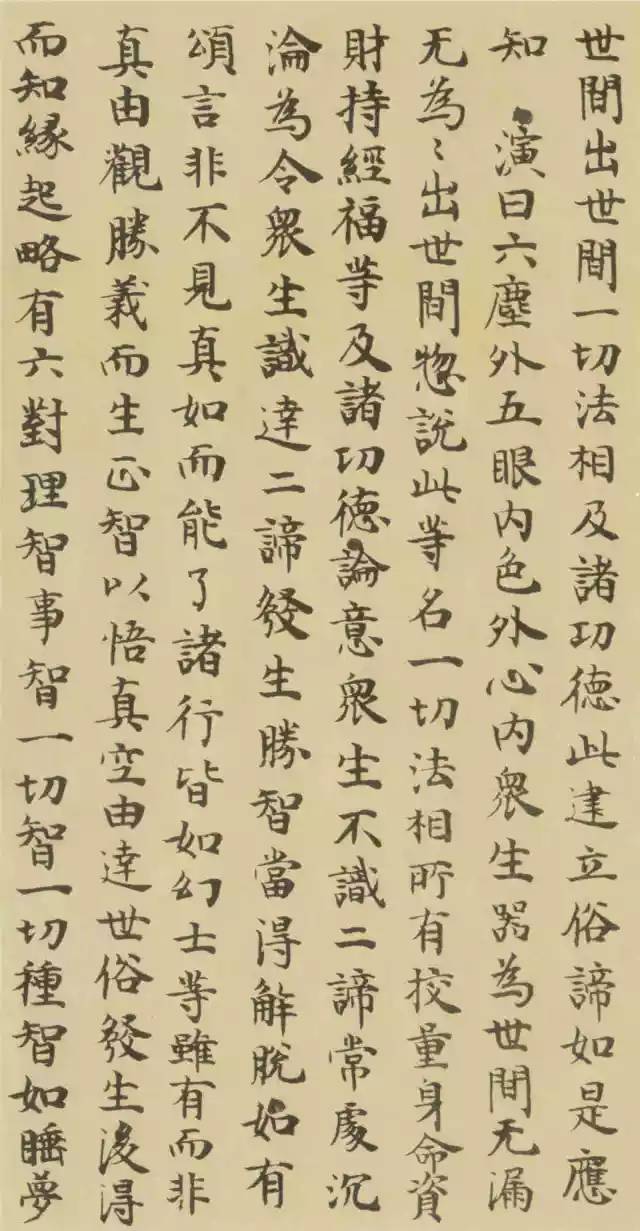 世間出世間一切法相及諸功德此建立俗諦如是應
知　演曰六塵外五眼内色外心内衆生器為世間无漏
无為〻出世間惣說此等名一切法相所有挍量身命資
財持經福等及諸功德論意衆生不識二諦常處沉
淪為令衆生識達二諦發生勝智當得解脫如有
頌言非不見真如而能了諸行皆如幻士等雖有而非
真由觀勝義而生正智以悟真空由達世俗發生後得
而知緣起略有六對理智事智一切智一切種智如睡夢